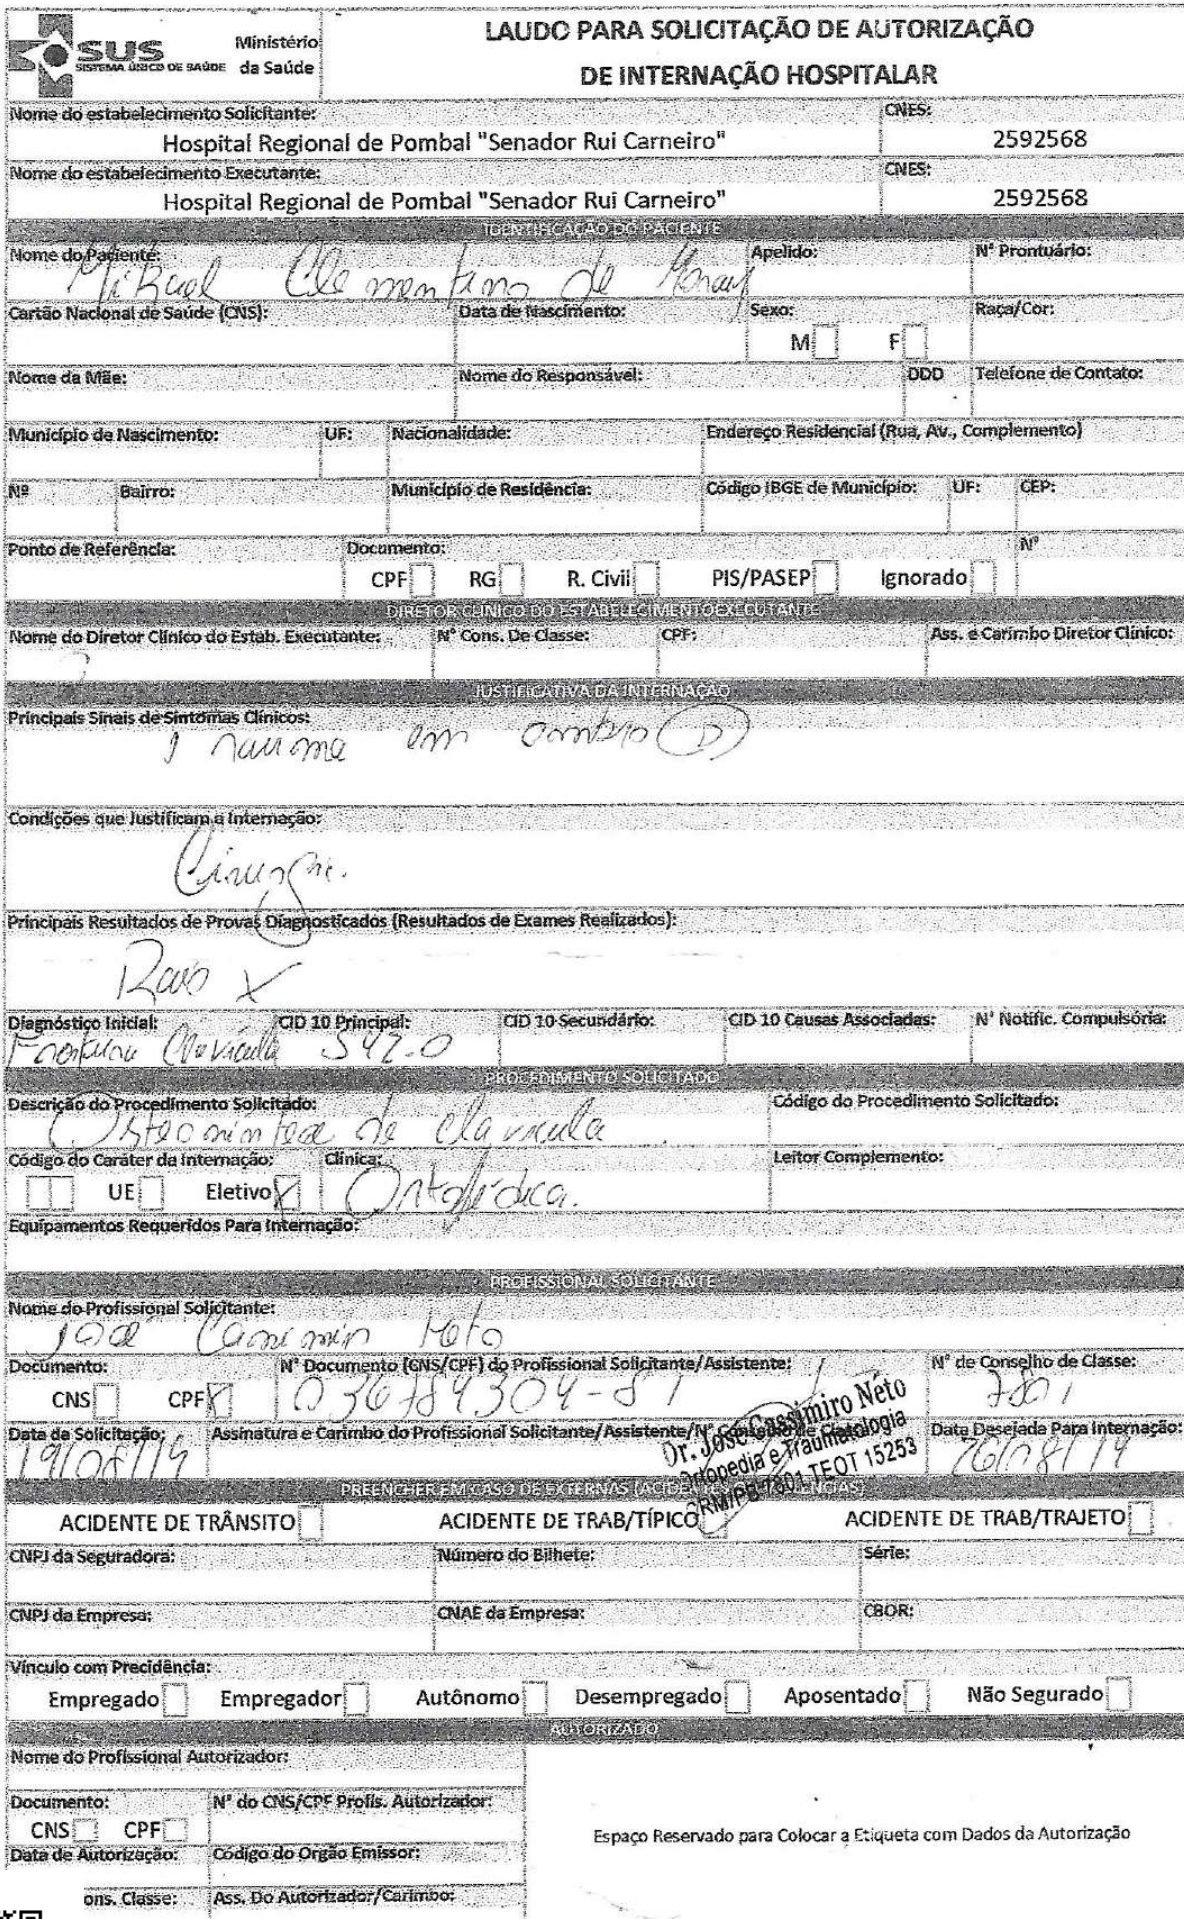 SUS
SISTEMA ÚNICO DE SAÚDE
Ministério
da Saúde
LAUDO PARA SOLICITAÇÃO DE AUTORIZAÇÃO
DE INTERNAÇÃO HOSPITALAR
Nome do estabelecimento Solicitante: CNES:
Hospital Regional de Pombal "Senador Rui Carneiro" 2592568
Nome do estabelecimento Executante: CNES:
Hospital Regional de Pombal "Senador Rui Carneiro" 2592568
IDENTIFICAÇÃO DO PACIENTE
Nome do Paciente: Apelido: N° Prontuário:
Mikael Clementino de
Cartão Nacional de Saúde (CNS): Data de Nascimento: Sexo: Raça/Cor:
M F
Nome da Mãe: Nome do Responsável: DDD Telefone de Contato:
Município de Nascimento: UF: Nacionalidade: Endereço Residencial (Rua, Av., Complemento)
Nº Bairro: Município de Residência: Código IBGE de Município: UF: CEP:
Ponto de Referência: Documento: N°
CPF RG R. Civil PIS/PASEP Ignorado
DIRETOR CLINICO DO ESTABELECIMENTOEXECUTANTE
Nome do Diretor Clínico do Estab. Executante: N° Cons. De Classe: CPF: Ass. e Carimbo Diretor Clínico:
JUSTIFICATIVA DA INTERNAÇÃO
Principais Sinais de Sintomas Clínicos:
Trauma em ombro (D)
Condições que Justificam a Internação:
Cirurgia.
Principais Resultados de Provas Diagnosticados (Resultados de Exames Realizados):
Raio X
Diagnóstico Inicial: CID 10 Principal: CID 10 Secundário: CID 10 Causas Associadas: N° Notific. Compulsória:
Fratura Clavícula S42.0
PROCEDIMENTO SOLICITADO
Descrição do Procedimento Solicitado: Código do Procedimento Solicitado:
de clavicula
Código do Caráter da Internação: Clínica: Leitor Complemento:
UE Eletivo X Ortopédica.
Equipamentos Requeridos Para Internação:
PROFISSIONAL SOLICITANTE
Nome do Profissional Solicitante:
José Casimiro Neto
Documento: N° Documento (CNS/CPF) do Profissional Solicitante/Assistente: N° de Conselho de Classe:
CNS CPF X 036784304-81 7801
Data da Solicitação: Assinatura e Carimbo do Profissional Solicitante/Assistente/N° Conselho de Classe: Data Desejada Para Internação:
19/08/19 Dr. José Cassimiro Neto 20/08/19
Ortopedia e Traumatologia
CRM/PB 7801 TEOT 15253
PREENCHER EM CASO DE EXTERNAS (ACIDENTES
ACIDENTE DE TRÂNSITO ACIDENTE DE TRAB/TÍPICO ACIDENTE DE TRAB/TRAJETO
CNPJ da Seguradora: Número do Bilhete: Série:
CNPJ da Empresa: CNAE da Empresa: CBOR:
Vínculo com Precidência:
Empregado Empregador Autônomo Desempregado Aposentado Não Segurado
AUTORIZADO
Nome do Profissional Autorizador:
Documento: N° do CNS/CPF Profis. Autorizador:
CNS CPF
Espaço Reservado para Colocar a Etiqueta com Dados da Autorização
Data de Autorização: Código do Orgão Emissor:
ons. Classe: Ass. Do Autorizador/Carimbo: